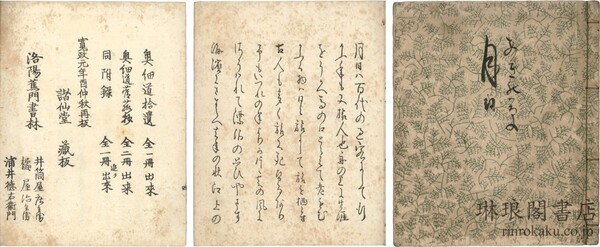 月日
月日は百代の過客にして行
かふ年も又旅人也舟の上に生涯
をうかへ馬の口とらえて老をむ
かふる物は日々旅にして旅を栖とす
古人も多く旅に死せるあり予も
いつれの年よりか片雲の風に
さそはれて漂泊の思ひやます
海濱にさすらへ去年の秋江上の
奥細道拾遺 全一冊出来
奥細道菅菰抄 全二冊出来
同附録 全一冊出来
寛政元年酉仲秋再板
諧仙堂 蔵板
洛陽蕉門書林
井筒屋庄兵衛
橘屋治兵衛
浦井徳右衛門
琳琅閣書店
rinrokaku.co.jp